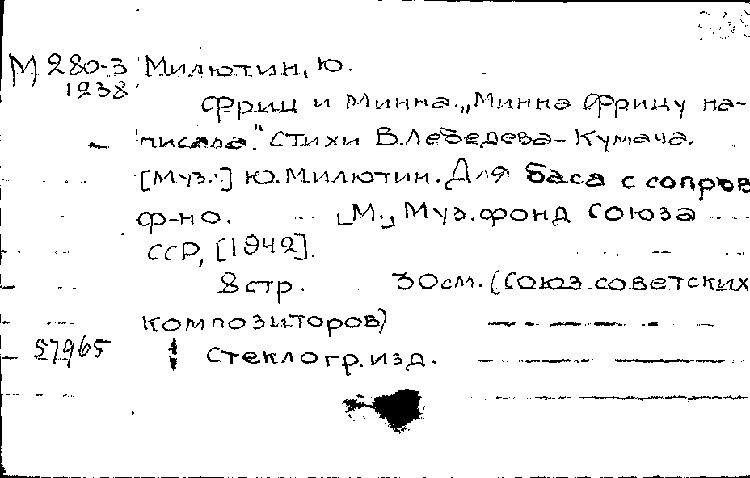 М 280-3 Милютин, Ю.
1238
Фриц и Минна. „Минна Фрицу на-
писала." Стихи В.Лебедева-Кумача.
[Муз.:] Ю.Милютин. Для баса с сопров
ф-но. [М.] Муз.фонд Союза
ССР, [1942].
8 стр. 30см. (Союз советских
композиторов)
57965 Стеклогр.изд.